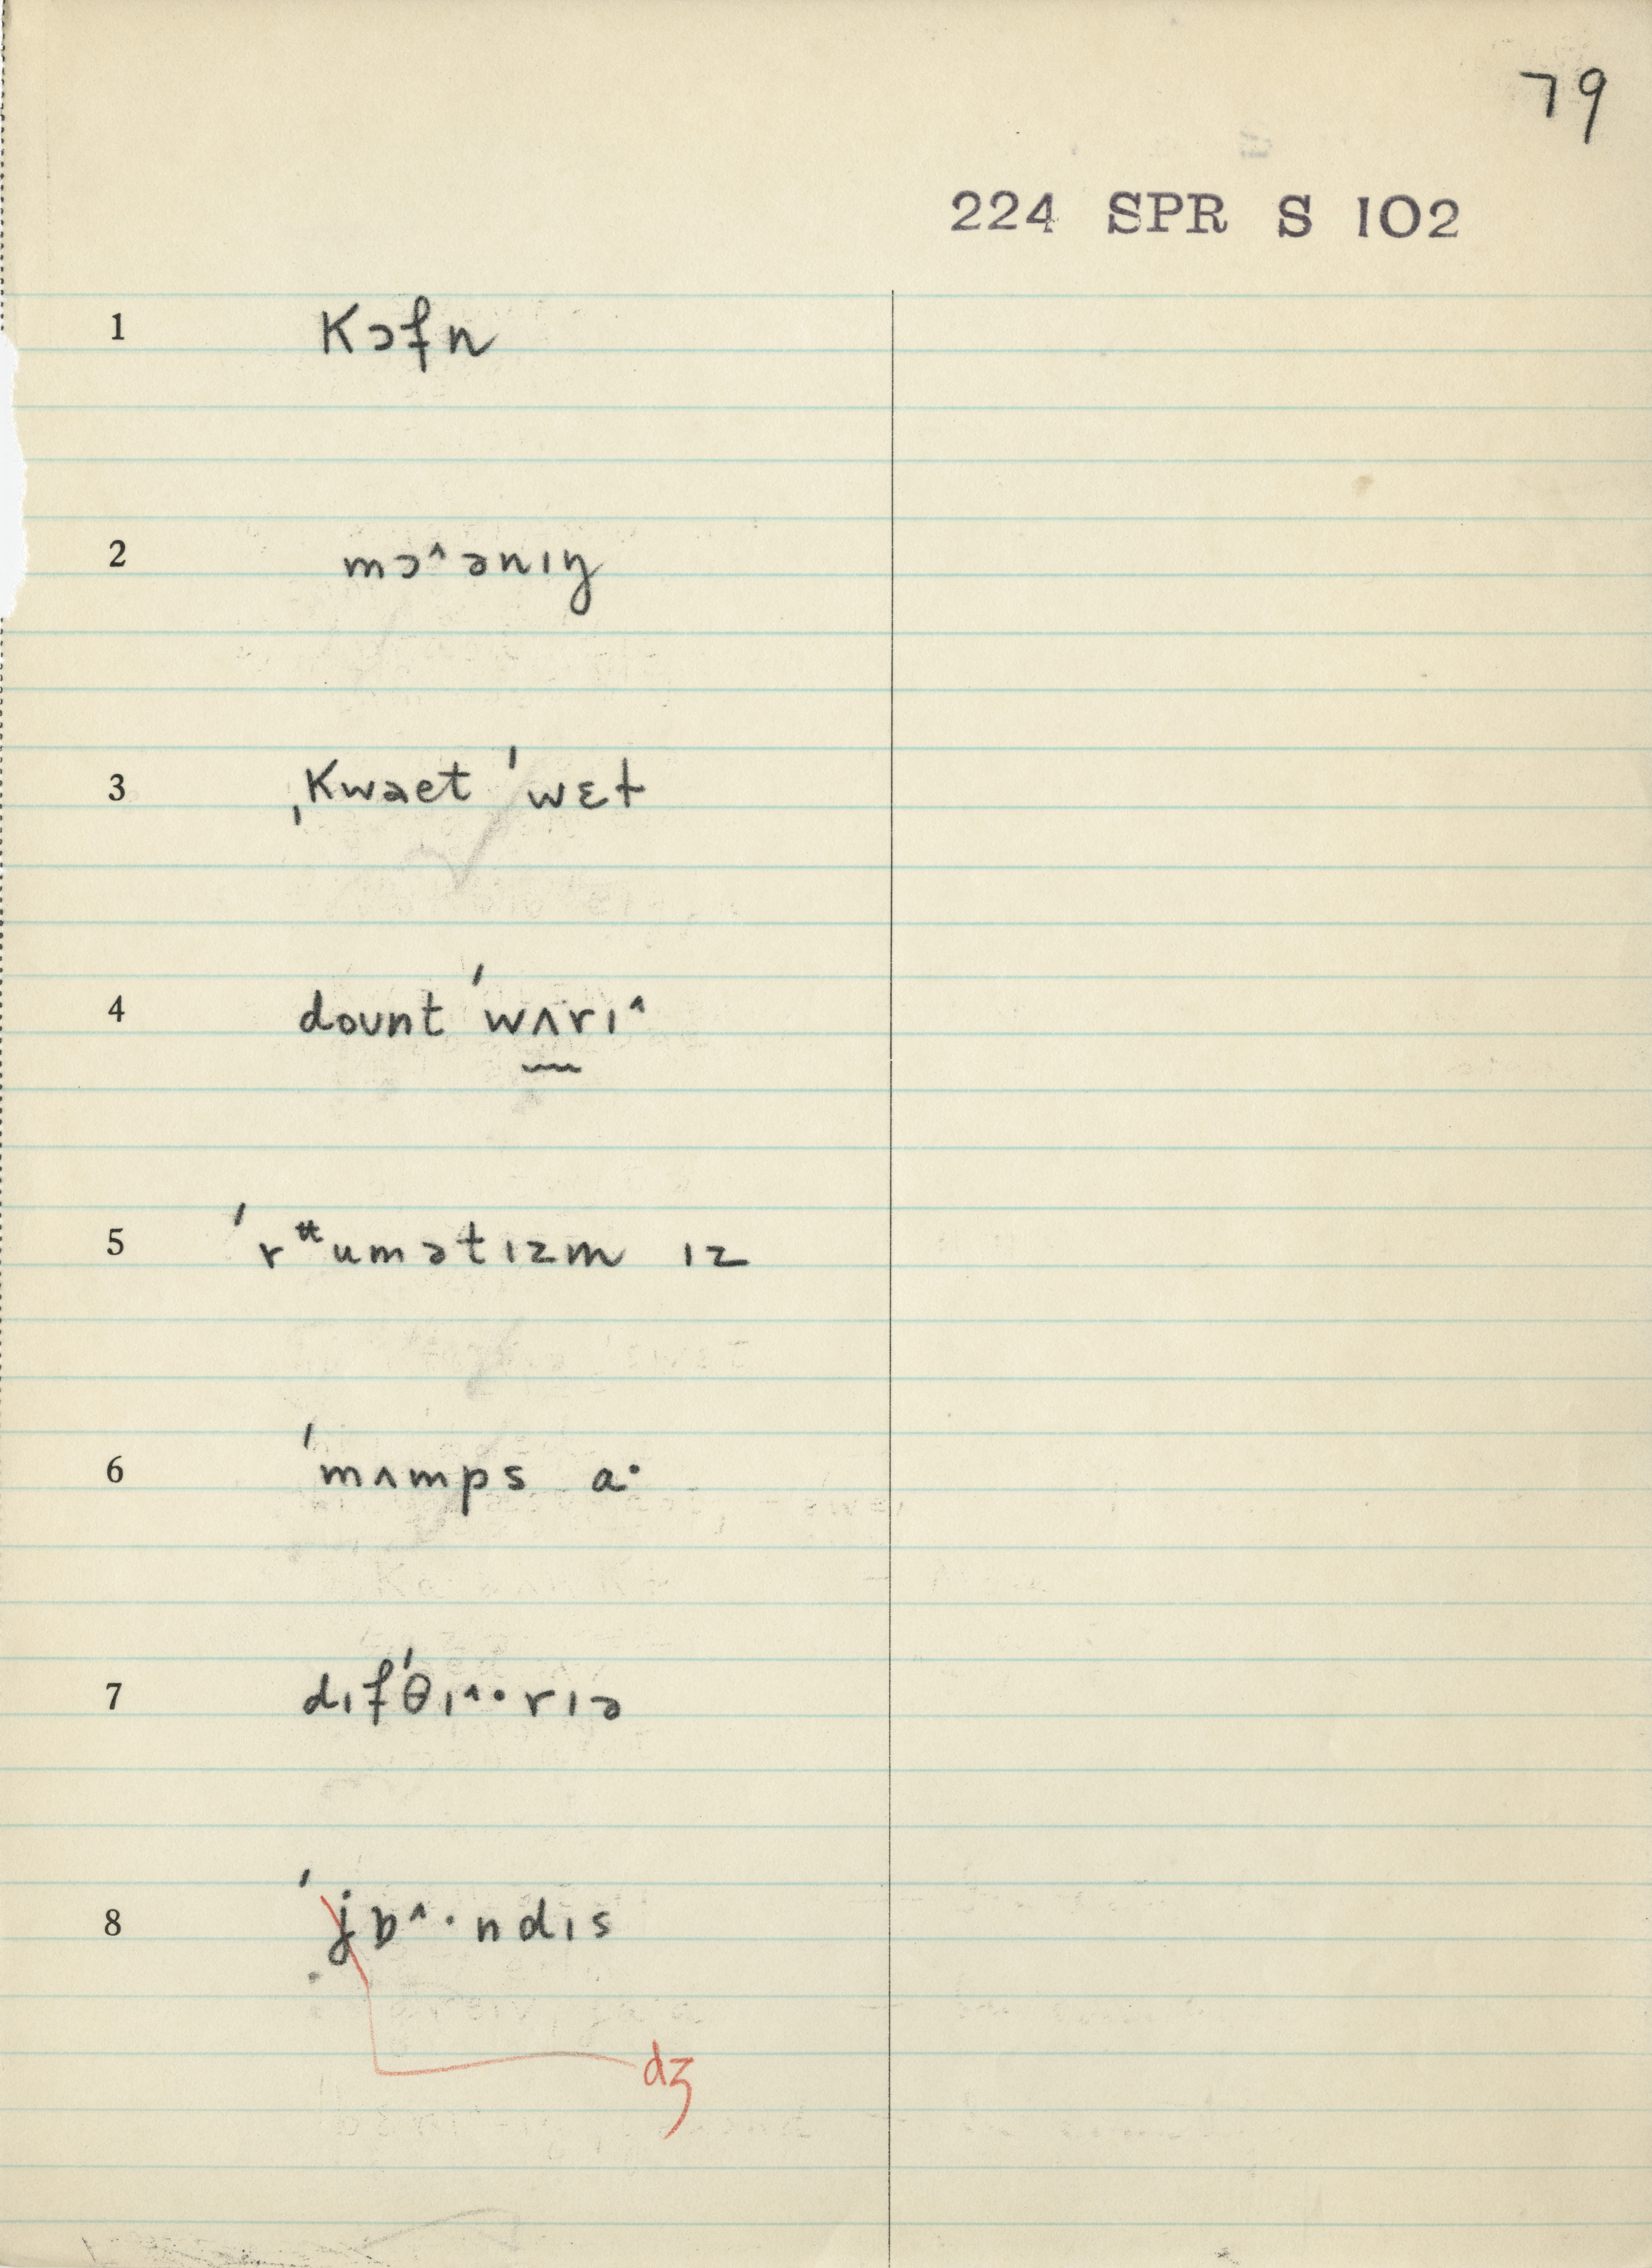 79
224 SPR S 102
1 kɔfn
2 mɔ˄ənɪŋ
3 ˌkwaet ˈwɛt
4 dount ˈwʌrɪ˄
5 ˈrᵚumətɪzm ɪz
6 ˈmʌmps a·
7 dɪfˈθɪ˄·rɪə
8 ˈjɒ˄·ndɪs
dʒ